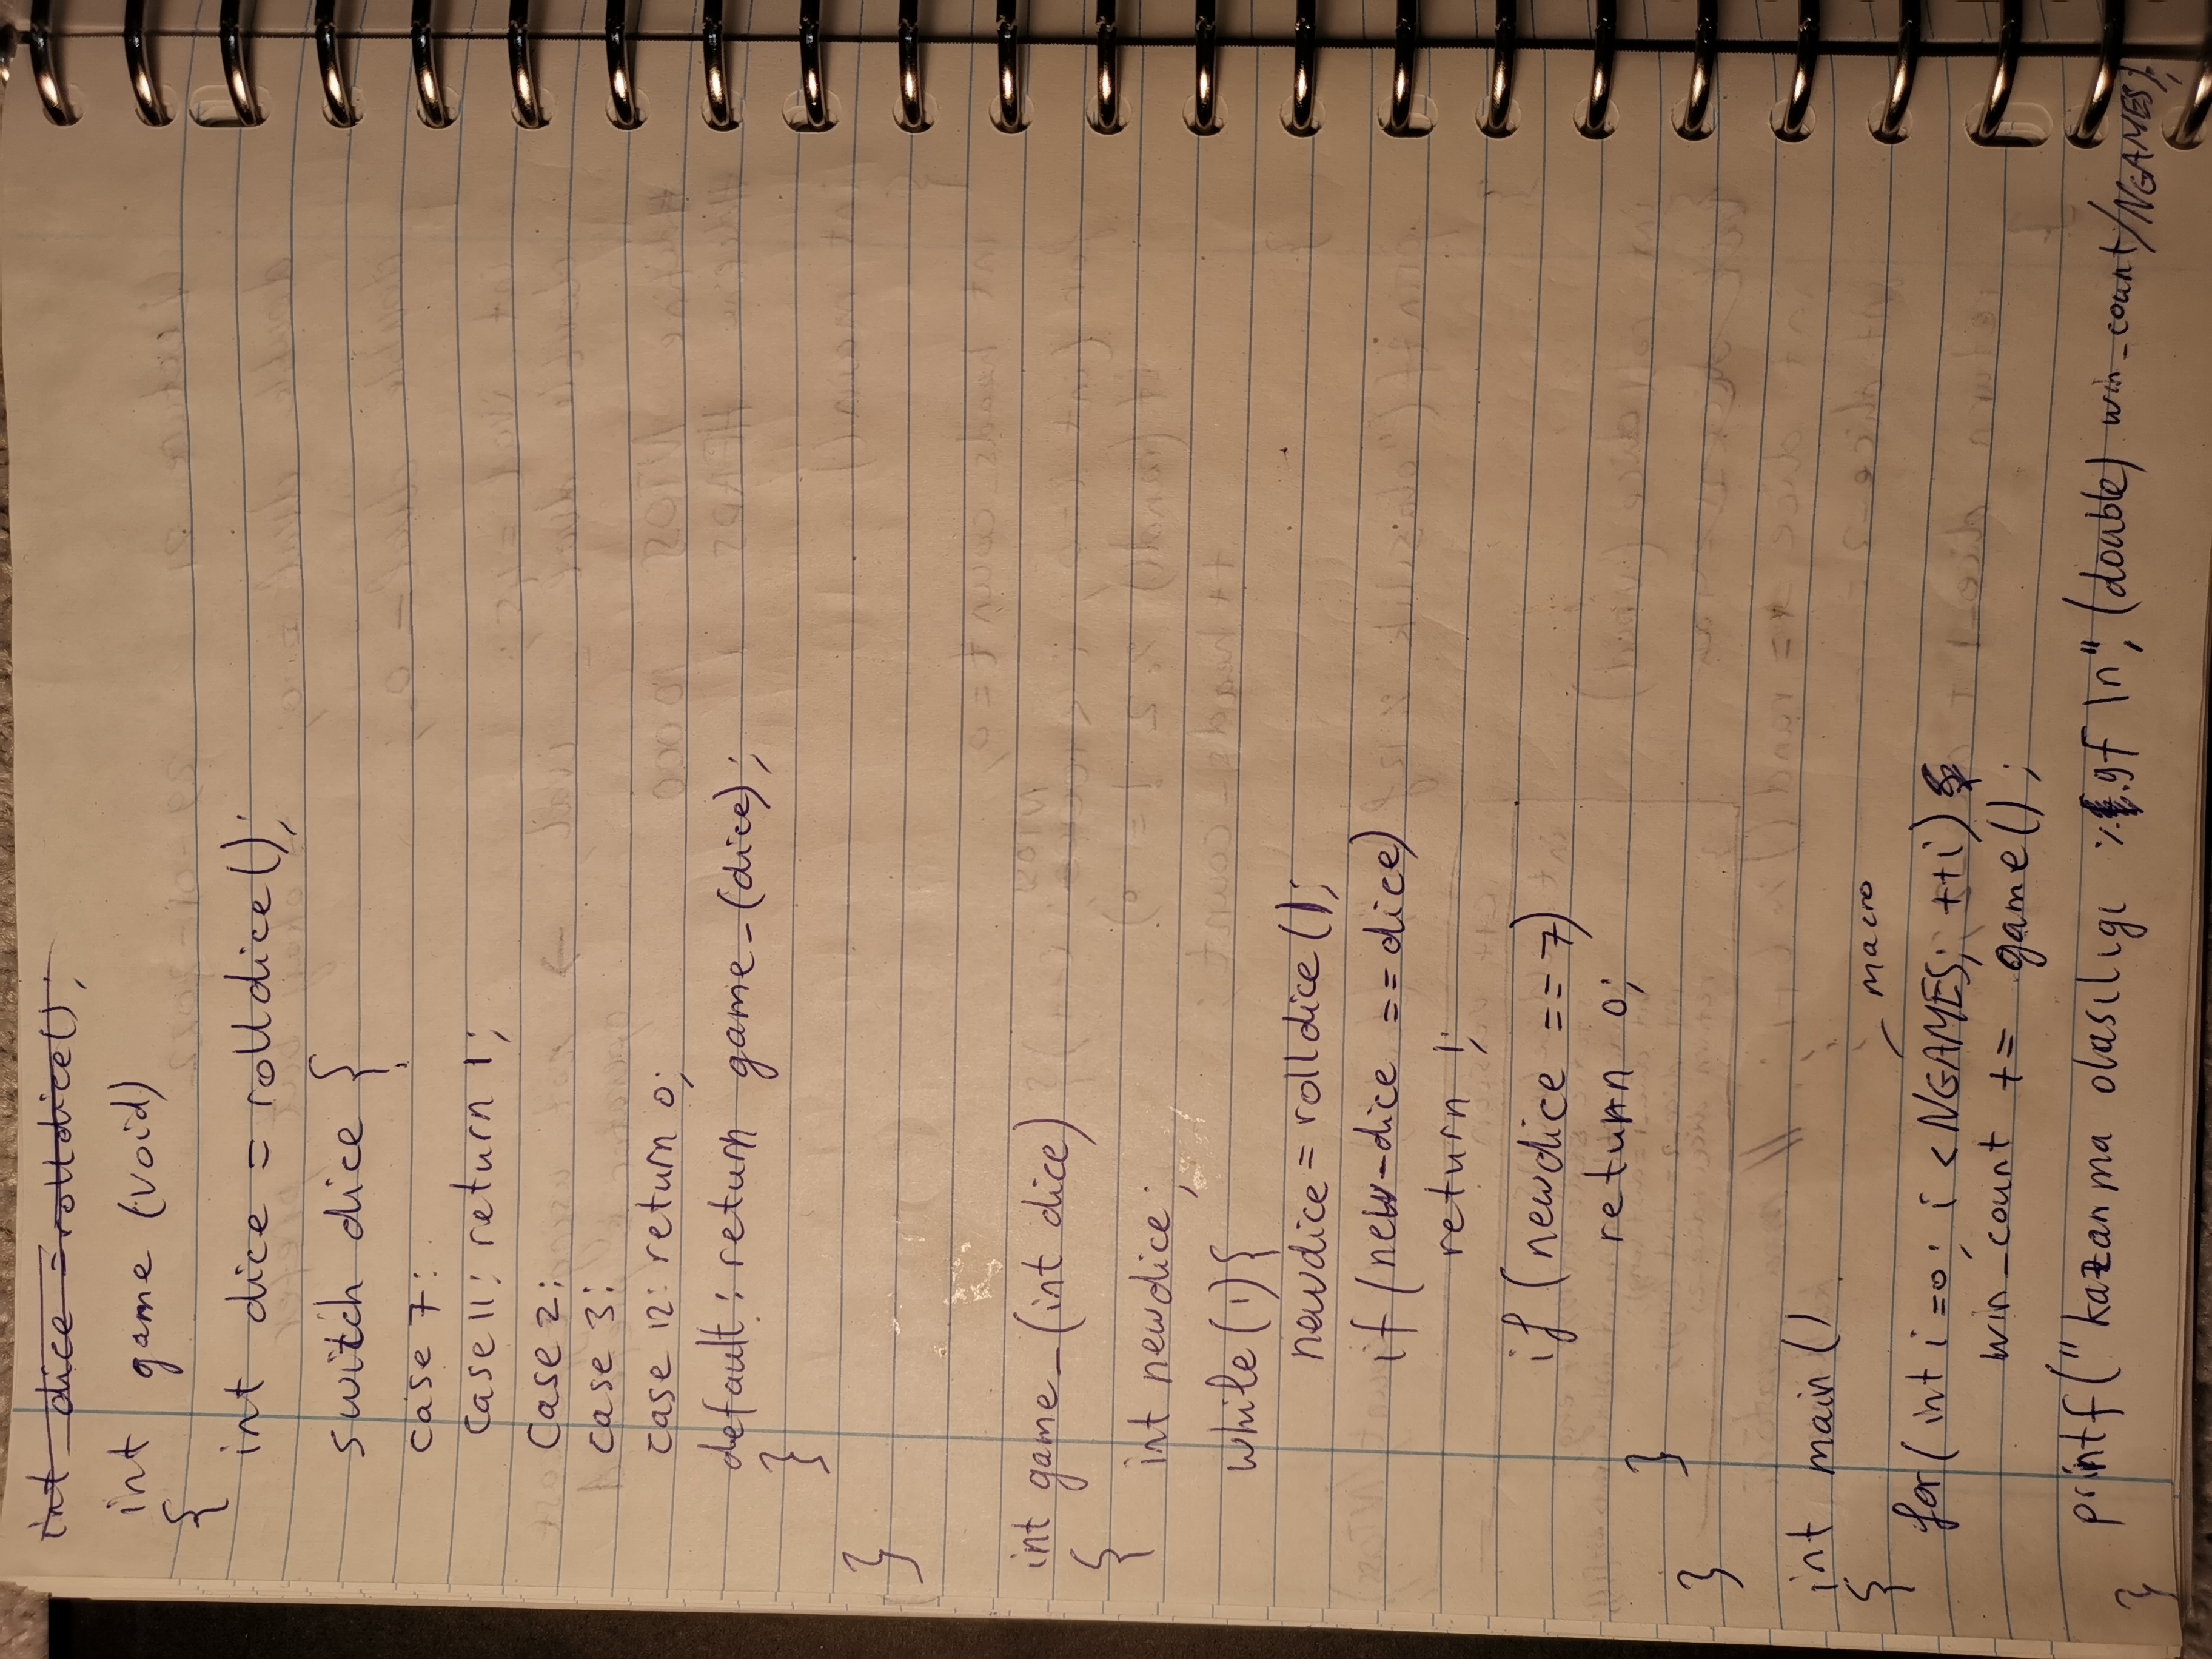 int dice = rolldice();
int game (void)
{
int dice = rolldice();
switch dice {
case 7:
case 11: return 1;
case 2:
case 3:
case 12: return 0;
default: return game_(dice);
}
}
int game_(int dice)
{
int newdice;
while (1){
newdice = rolldice();
if (new-dice == dice)
return 1;
if (newdice == 7)
return 0;
}
}
int main()
{
macro
for( int i=0; i < NGAMES; ++i)
win_count += game();
printf("kazanma olasılıgı %.9f \n", (double) win_count/NGAMES);
}